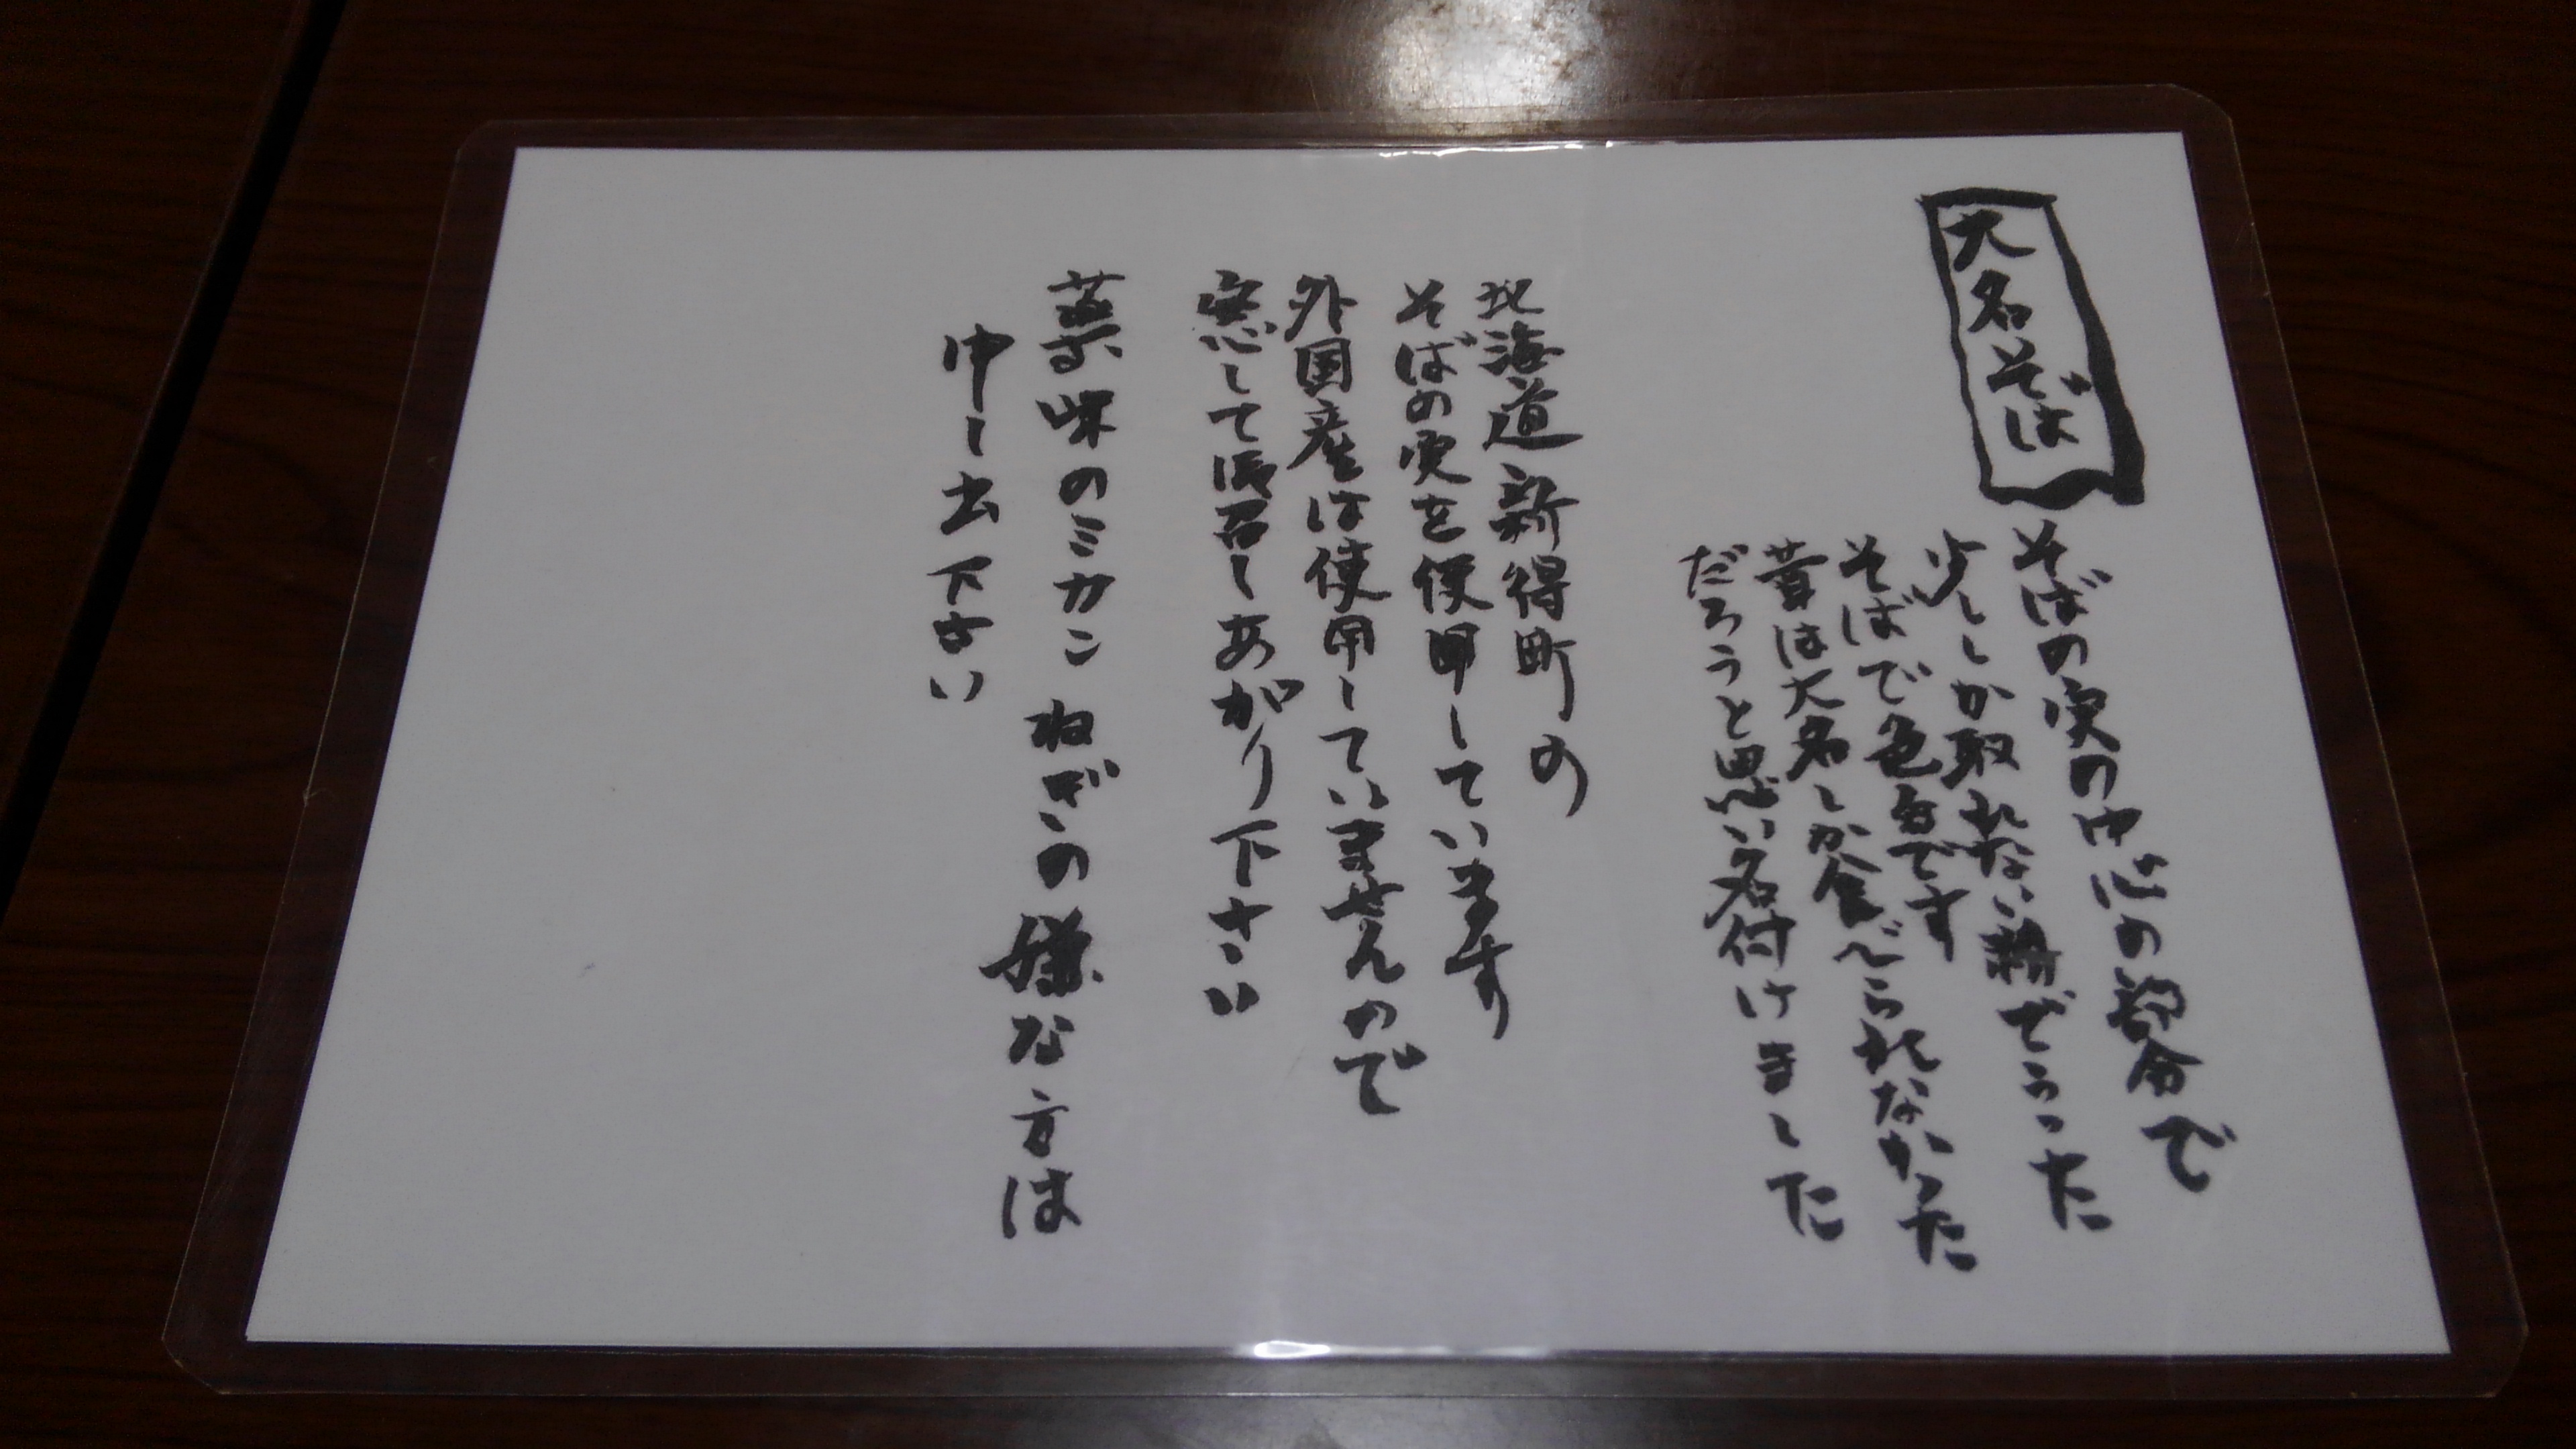 大名そば
そばの実の中心の部分で
少ししか取れない粉でうった
そばで色白です
昔は大名しか食べられなかった
だろうと思い名付けました
北海道新得町の
そばの実を使用しています
外国産は使用していませんので
安心して御召しあがり下さい
薬味のミカンねぎの嫌な方は
申し出下さい